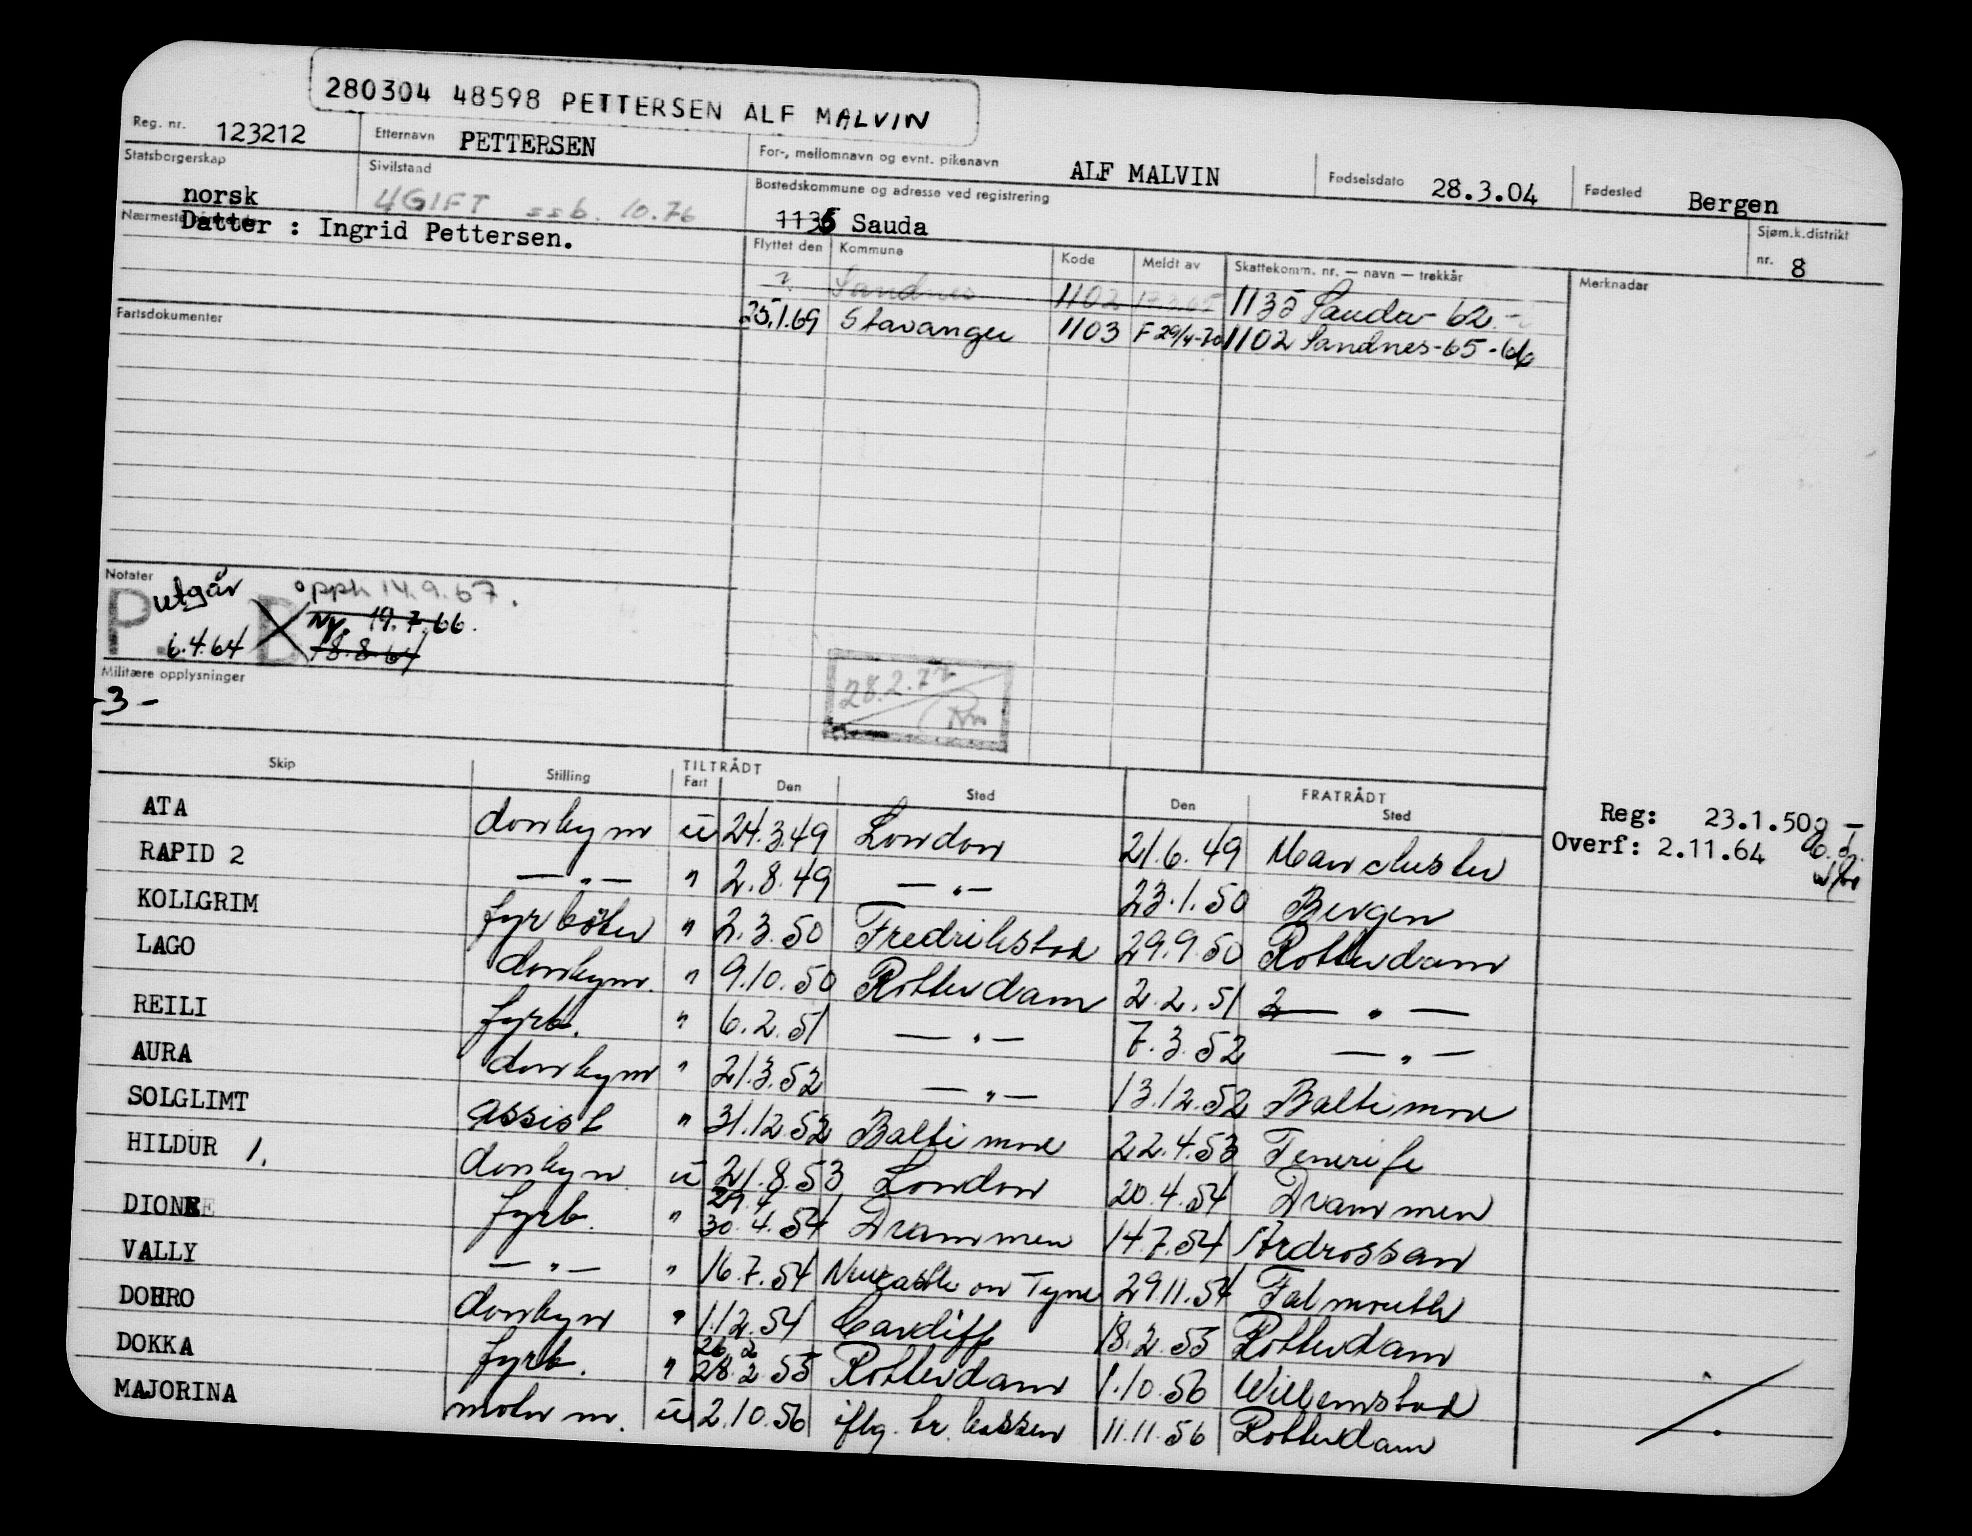 280304 48598 PETTERSEN ALF MALVIN
Reg. nr. 123212 Etternavn PETTERSEN For-, mellomnavn og evnt. pikenavn ALF MALVIN Fødselsdato 28.3.04 Fødested Bergen
Statsborgerskap norsk Sivilstand UGIFT ssb. 10.76 Bostedskommune og adresse ved registrering 1135 Sauda Sjøm.k.distrikt nr. 8
Nærmeste Datter : Ingrid Pettersen.
Flyttet den Kommune Kode Meldt av Skattekomm. nr. — navn — trekkår Merknader
? Sandnes 1102 1135 Sauda- 62.-
25.1.69 Stavanger 1103 F 29/4-70 1102 Sandnes-65-66
Fartsdokumenter
Notater
P. utgår 6.4.64 B opph 14.9.67.
Ny. 19.7.66.
18.8.64
Militære opplysninger
-3-
28.2.72
Skip Stilling TILTRÅDT Fart Den Sted FRATRÅDT Den Sted
Reg: 23.1.50
Overf: 2.11.64
ATA donkym u 24.3.49 London 21.6.49 Manchester
RAPID 2 — " — " 2.8.49 — " — 23.1.50 Bergen
KOLLGRIM fyrbøter " 2.3.50 Fredrikstad 29.9.50 Rotterdam
LAGO donkym. " 9.10.50 Rotterdam 2.2.51 — " —
REILI fyrb. " 6.2.51 — " — 7.3.52 — " —
AURA donkym " 21.3.52 — " — 13.12.52 Baltimore
SOLGLIMT assist " 31.12.52 Baltimore 22.4.53 Tenerife
HILDUR 1. donkym u 21.8.53 London 20.4.54 Drammen
DIONE fyrb. " 29.4 30.4.54 Drammen 14.7.54 Ardrossan
VALLY — " — " 16.7.54 Newcastle on Tyne 29.11.54 Falmouth
DOKRO donkym " 1.12.54 Cardiff 18.2.55 Rotterdam
DOKKA fyrb. " 26.2 28.2.55 Rotterdam 1.10.56 Willemstad
MAJORINA motorm. u 2.10.56 iflg. br. kassen 11.11.56 Rotterdam